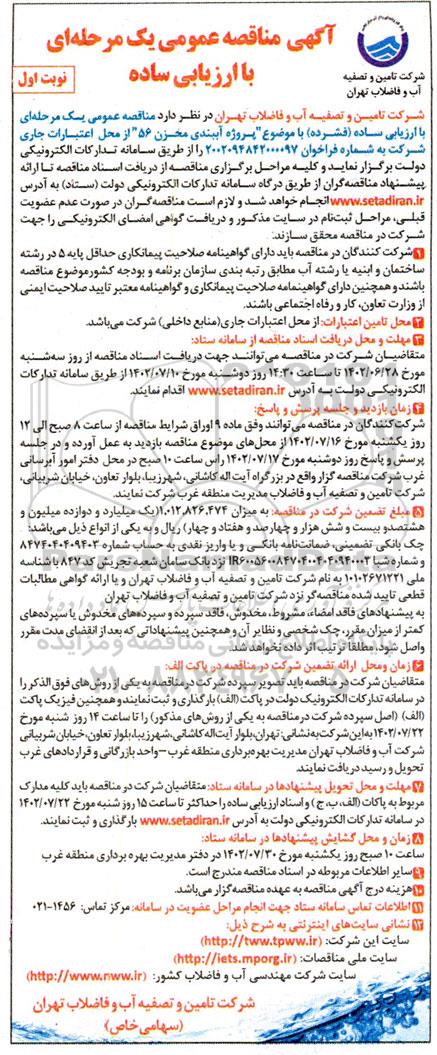 آگهی مناقصه عمومی یک مرحله‌ای
با ارزیابی ساده
شرکت تامین و تصفیه
آب و فاضلاب تهران
نوبت اول
شرکت تامین و تصفیه آب و فاضلاب تهران در نظر دارد مناقصه عمومی یک مرحله‌ای
با ارزیابی ساده (فشرده) با موضوع "پروژه آببندی مخزن ۵۶" از محل اعتبارات جاری
شرکت به شماره فراخوان ۲۰۰۲۰۹۴۸۴۲۰۰۰۰۹۷ را از طریق سامانه تدارکات الکترونیکی
دولت برگزار نماید و کلیه مراحل برگزاری مناقصه از دریافت اسناد مناقصه تا ارائه
پیشنهاد مناقصه‌گران از طریق درگاه سامانه تدارکات الکترونیکی دولت (ستاد) به آدرس
www.setadiran.ir انجام خواهد شد و لازم است مناقصه‌گران در صورت عدم عضویت
قبلی، مراحل ثبت‌نام در سایت مذکور و دریافت گواهی امضای الکترونیکی را جهت
شرکت در مناقصه محقق سازند.
۱ شرکت کنندگان در مناقصه باید دارای گواهینامه صلاحیت پیمانکاری حداقل پایه ۵ در رشته
ساختمان و ابنیه یا رشته آب مطابق رتبه بندی سازمان برنامه و بودجه کشور موضوع مناقصه
باشند و همچنین دارای گواهینامه صلاحیت پیمانکاری و گواهینامه معتبر تایید صلاحیت ایمنی
از وزارت تعاون، کار و رفاه اجتماعی باشند.
۲ محل تامین اعتبارات: از محل اعتبارات جاری (منابع داخلی) شرکت می‌باشد.
۳ مهلت و محل دریافت اسناد مناقصه از سامانه ستاد:
متقاضیان شرکت در مناقصه می‌توانند جهت دریافت اسناد مناقصه از روز سه‌شنبه
مورخ ۱۴۰۲/۰۶/۲۸ تا ساعت ۱۴:۳۰ روز دوشنبه مورخ ۱۴۰۲/۰۷/۱۰ از طریق سامانه تدارکات
الکترونیکی دولت به آدرس www.setadiran.ir اقدام نمایند.
۴ زمان بازدید و جلسه پرسش و پاسخ:
شرکت‌کنندگان در مناقصه می‌توانند وفق ماده ۹ اوراق شرایط مناقصه از ساعت ۸ صبح الی ۱۲
روز یکشنبه مورخ ۱۴۰۲/۰۷/۱۶ از محل‌های موضوع مناقصه بازدید به عمل آورده و در جلسه
پرسش و پاسخ روز دوشنبه مورخ ۱۴۰۲/۰۷/۱۷ راس ساعت ۱۰ صبح در محل دفتر امور آبرسانی
غرب شرکت مناقصه گزار واقع در بزرگراه آیت اله کاشانی، شهرزیبا، بلوار تعاون، خیابان شربیانی،
شرکت تامین و تصفیه آب و فاضلاب مدیریت منطقه غرب شرکت نمایند.
۵ مبلغ تضمین شرکت در مناقصه: به میزان ۱.۰۱۲.۸۲۶.۴۷۴ (یک میلیارد و دوازده میلیون و
هشتصد و بیست و شش هزار و چهارصد و هفتاد و چهار) ریال و به یکی از انواع ذیل می‌باشد:
چک بانکی تضمینی، ضمانت‌نامه بانکی و یا واریز نقدی به حساب شماره ۸۴۷۴۰۴۰۴۰۹۴۰۳
و شماره شبا IR۶۰۰۵۶۰۰۸۴۷۰۴۰۰۴۰۴۰۹۴۰۰۳ نزد بانک سامان شعبه تجریش کد ۸۴۷ با شناسه
ملی ۱۰۱۰۲۶۷۱۲۲۱ به نام شرکت تامین و تصفیه آب و فاضلاب تهران و یا ارائه گواهی مطالبات
قطعی تایید شده مناقصه‌گر نزد شرکت تامین و تصفیه آب و فاضلاب تهران
به پیشنهادهای فاقد امضاء، مشروط، مخدوش، فاقد سپرده و سپرده‌های مخدوش یا سپرده‌های
کمتر از میزان مقرر، چک شخصی و نظایر آن و همچنین پیشنهاداتی که بعد از انقضای مدت مقرر
واصل شود، مطلقا ترتیب اثر داده نخواهد شد.
۶ زمان و محل ارائه تضمین شرکت در مناقصه در پاکت الف:
متقاضیان شرکت در مناقصه باید تصویر سپرده شرکت در مناقصه به یکی از روش‌های فوق الذکر را
در سامانه تدارکات الکترونیک دولت در پاکت (الف) بارگذاری و ثبت نمایند و همچنین فیزیک پاکت
(الف) (اصل سپرده شرکت در مناقصه به یکی از روش‌های مذکور) را تا ساعت ۱۴ روز شنبه مورخ
۱۴۰۲/۰۷/۲۲ به این شرکت به نشانی: تهران، بلوار آیت اله کاشانی، شهرزیبا، بلوار تعاون، خیابان شربیانی
شرکت آب و فاضلاب تهران مدیریت بهره‌برداری منطقه غرب - واحد بازرگانی و قراردادهای غرب
تحویل و رسید دریافت نمایند.
۷ مهلت و محل تحویل پیشنهادها در سامانه ستاد: متقاضیان شرکت در مناقصه باید کلیه مدارک
مربوط به پاکات (الف، ب، ج) و اسناد ارزیابی ساده را حداکثر تا ساعت ۱۵ روز شنبه مورخ ۱۴۰۲/۰۷/۲۲
در سامانه تدارکات الکترونیکی دولت به آدرس www.setadiran.ir بارگذاری و ثبت نمایند.
۸ زمان و محل گشایش پیشنهادها در سامانه ستاد:
ساعت ۱۰ صبح روز یکشنبه مورخ ۱۴۰۲/۰۷/۳۰ در دفتر مدیریت بهره برداری منطقه غرب
۹ سایر اطلاعات مربوطه در اسناد مناقصه مندرج است.
۱۰ هزینه درج آگهی مناقصه به عهده مناقصه گزار می‌باشد.
۱۱ اطلاعات تماس سامانه ستاد جهت انجام مراحل عضویت در سامانه: مرکز تماس: ۱۴۵۶-۰۲۱
۱۲ نشانی سایت‌های اینترنتی به شرح ذیل:
سایت این شرکت: (http://tww.tpww.ir)
سایت ملی مناقصات: (http://iets.mporg.ir)
سایت شرکت مهندسی آب و فاضلاب کشور: (http://www.nww.ir)
شرکت تامین و تصفیه آب و فاضلاب تهران
(سهامی خاص)